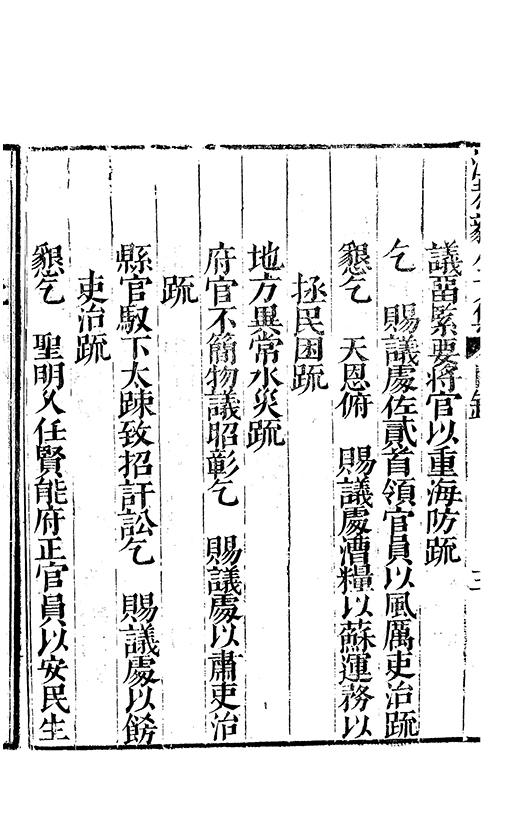 議留緊要將官以重海防疏
乞　賜議處佐貳首領官員以風厲吏治疏
懇乞　天恩俯　賜議處漕糧以蘇運務以
拯民困疏
地方異常水災疏
府官不簡物議昭彰乞　賜議處以肅吏治
疏
縣官馭下太踈致招訐訟乞　賜議處以餙
吏治疏
懇乞　聖明乆任賢能府正官員以安民生